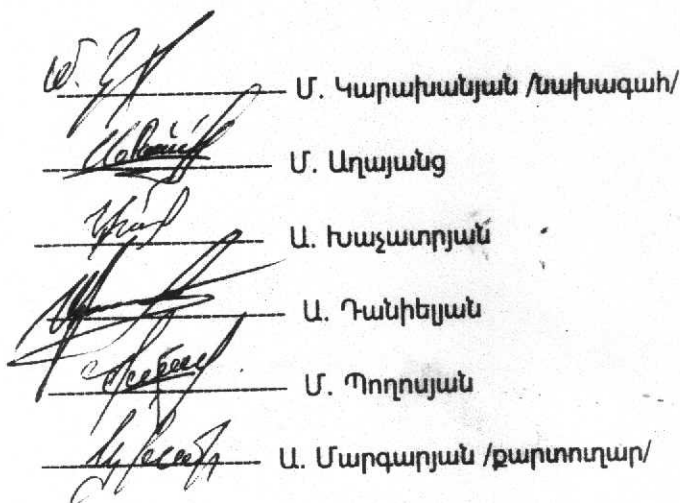 Մ. Կարախանյան /նախագահ/
Մ. Աղայանց
Ա. Խաչատրյան
Ա. Դանիելյան
Մ. Պողոսյան
Ա. Մարգարյան /քարտուղար/